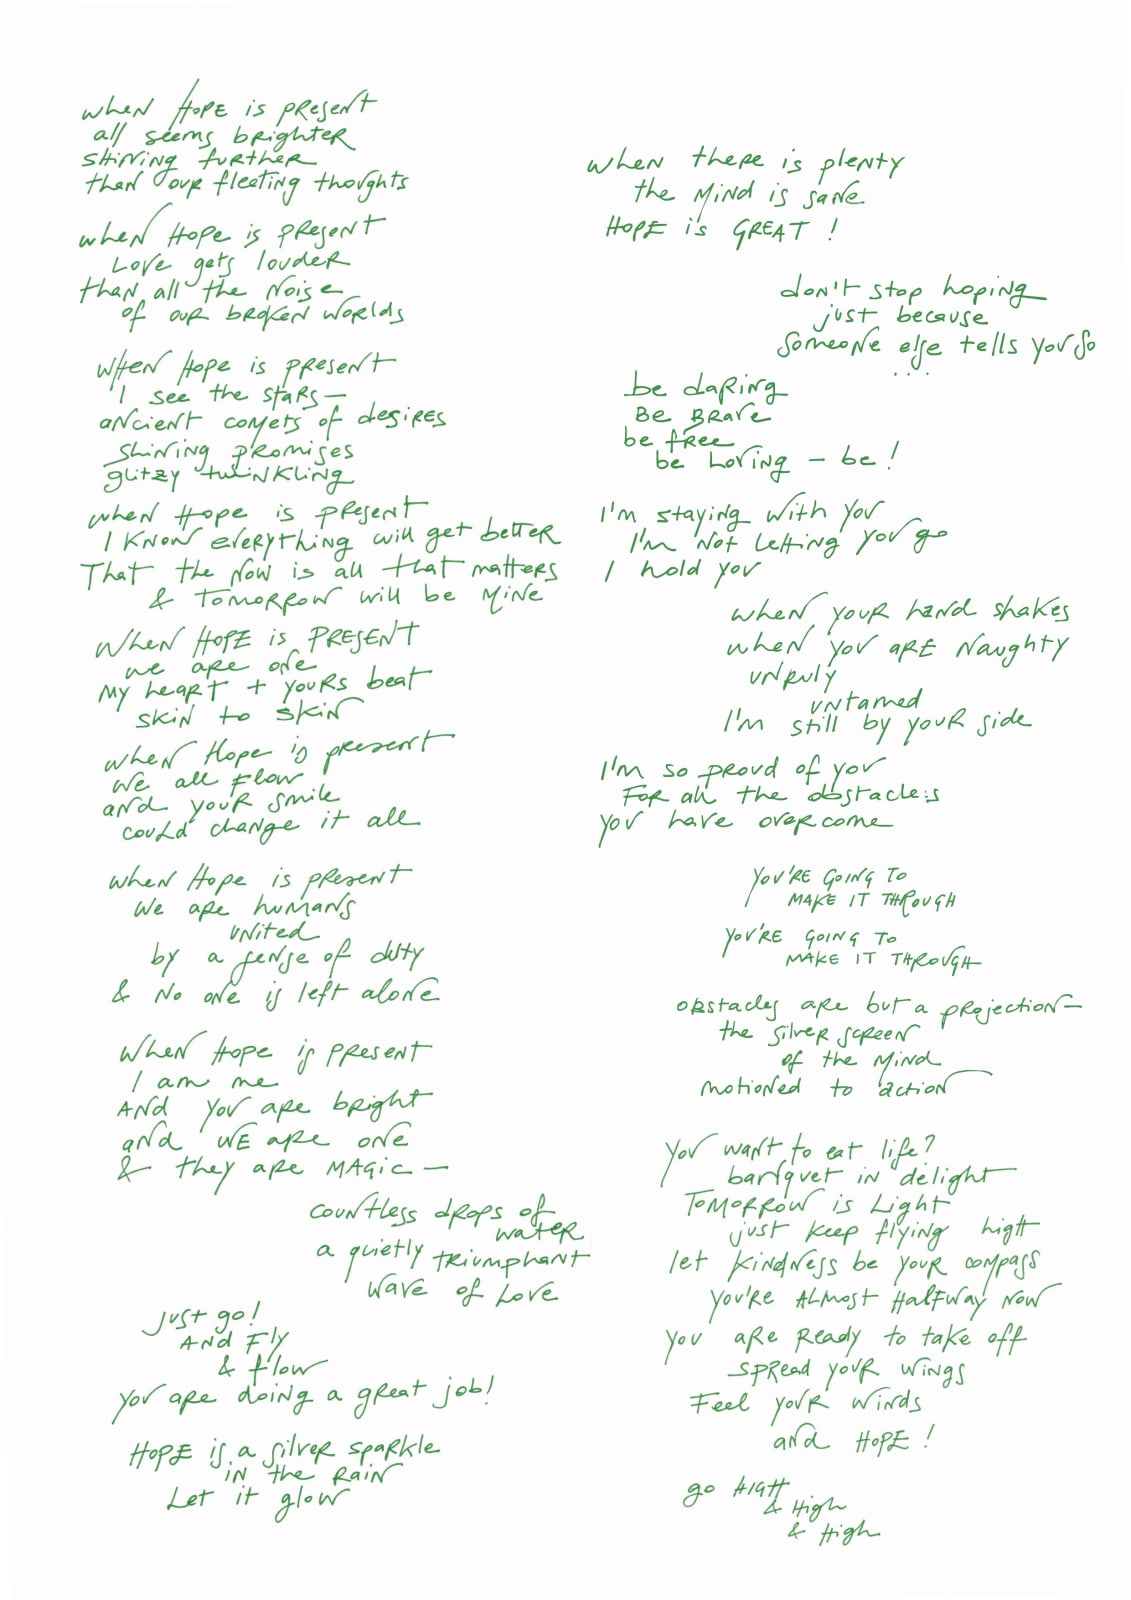 when HOPE is present
all seems brighter
shining further
than our fleeting thoughts
when Hope is present
Love gets louder
than all the Noise
of our broken worlds
When Hope is present
I see the stars—
ancient comets of desires
shining promises
glitzy twinkling
when Hope is present
I know everything will get better
That the Now is all that matters
& Tomorrow will be Mine
When HOPE is PRESENT
we are one
My heart + yours beat
skin to skin
when Hope is present
we all Flow
and your smile
could change it all
when Hope is present
We are humans
united
by a sense of duty
& No one is left alone
When Hope is present
I am me
AND you are bright
and WE are one
& they are MAgic—
countless drops of
water
a quietly triumphant
wave of Love
Just go!
AND Fly
& flow
you are doing a great job!
HOPE is a silver sparkle
in the Rain
Let it glow
when there is plenty
the Mind is sane
HOPE is GREAT !
don't stop hoping
just because
someone else tells you so
...
be daring
Be Brave
be free
be Loving – be !
I'm staying with you
I'm Not Letting you go
I hold you
when your hand shakes
when you are Naughty
unruly
untamed
I'm still by your side
I'm so proud of you
For all the obstacles
you have overcome
You're going to
make it through
You're going to
make it through
obstacles are but a projection—
the silver screen
of the Mind
motioned to action
You want to eat life?
banquet in delight
Tomorrow is Light
just keep flying high
let kindness be your compass
you're ALMOST HALFWAY NOW
you are Ready to take off
spread your wings
Feel your winds
and HOPE !
go HIGH
& High
& High